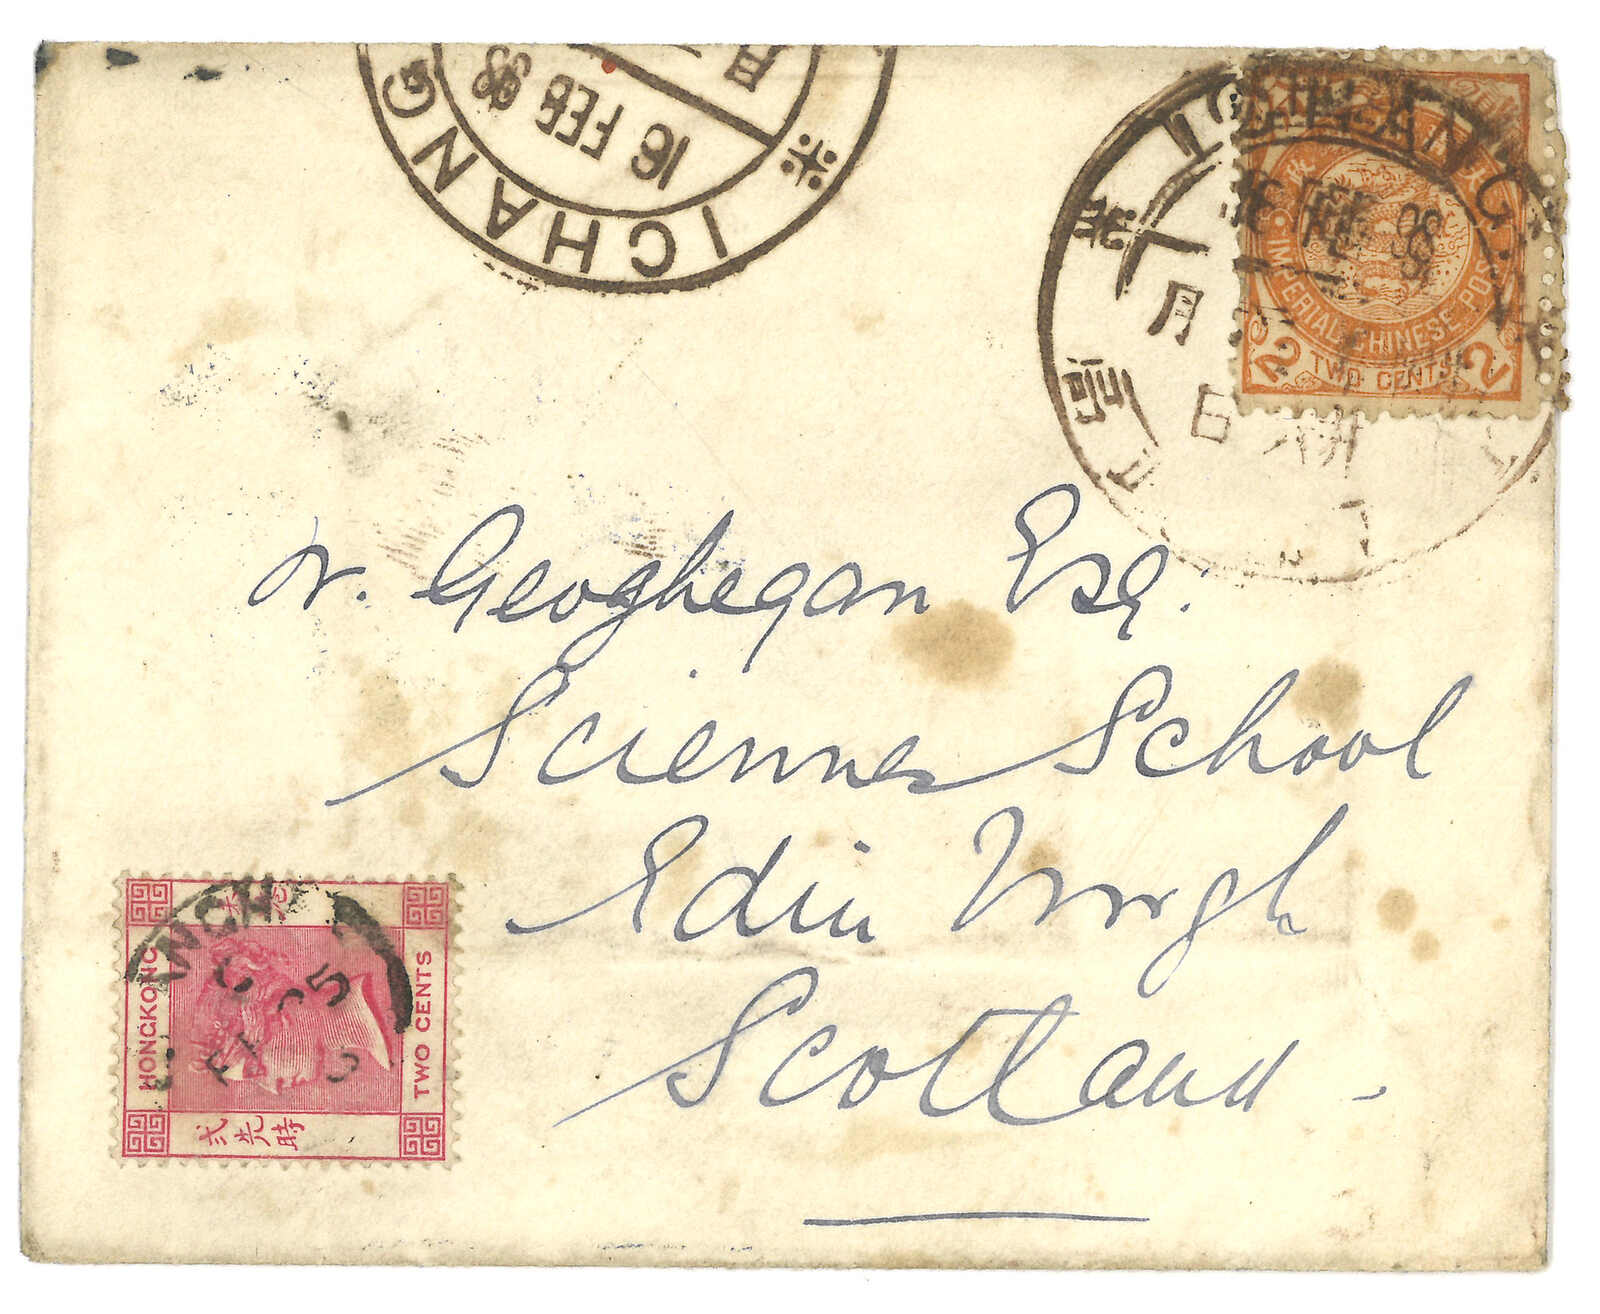 ICHANG
16 FEB 98
月
ICHANG
FEB 98
月
日
IMPERIAL CHINESE POST
2 TWO CENTS 2
Jr. Geoghegan Esq.
Sciennes School
Edinburgh
Scotland
HONGKONG
TWO CENTS
時先弍